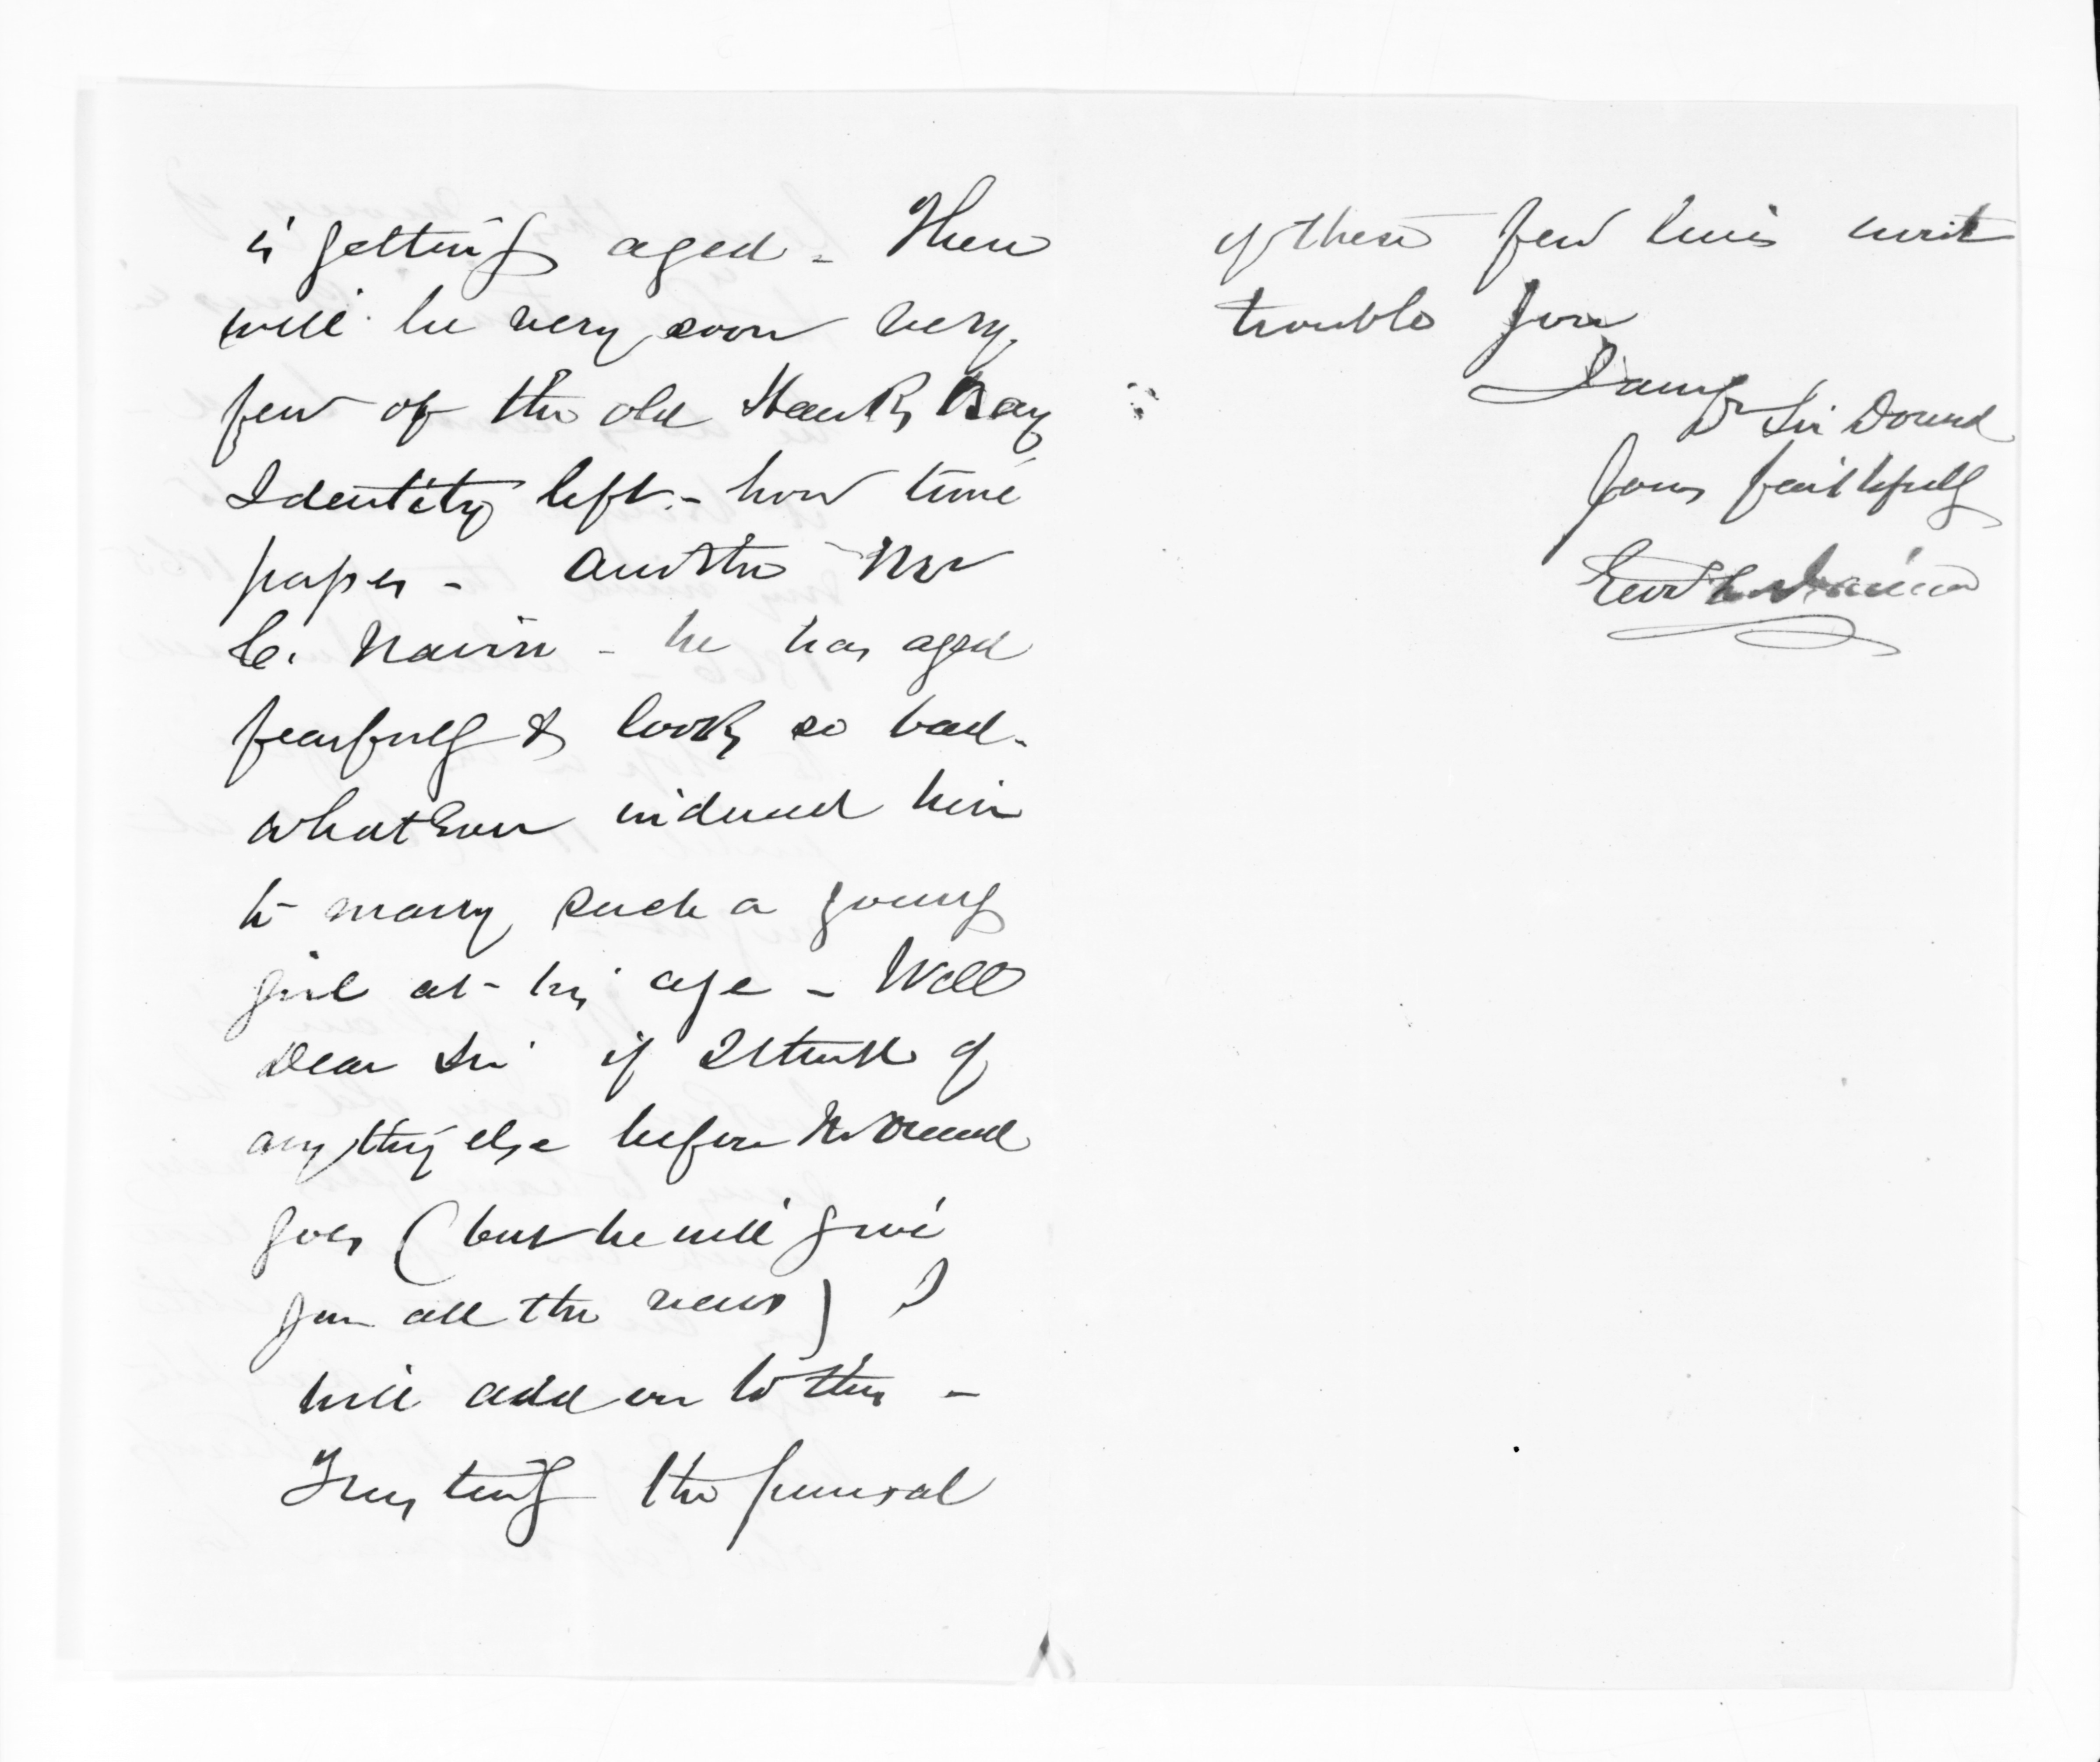 is getting aged - There
will be very soon very
few of the old Hawks Bay
Identity left - how time
passes - Another Mr
C. Nairn - he has aged
fearfully & looks so bad -
whatever induced him
to marry such a young
girl at his age - Well
Dear Sir if I think of
anything else before
goes (but he will give
you all the news) I
will add on to this -
Trusting the perusal
of these few lines wont
trouble you
I am
Sir Donald
Yours faithfully